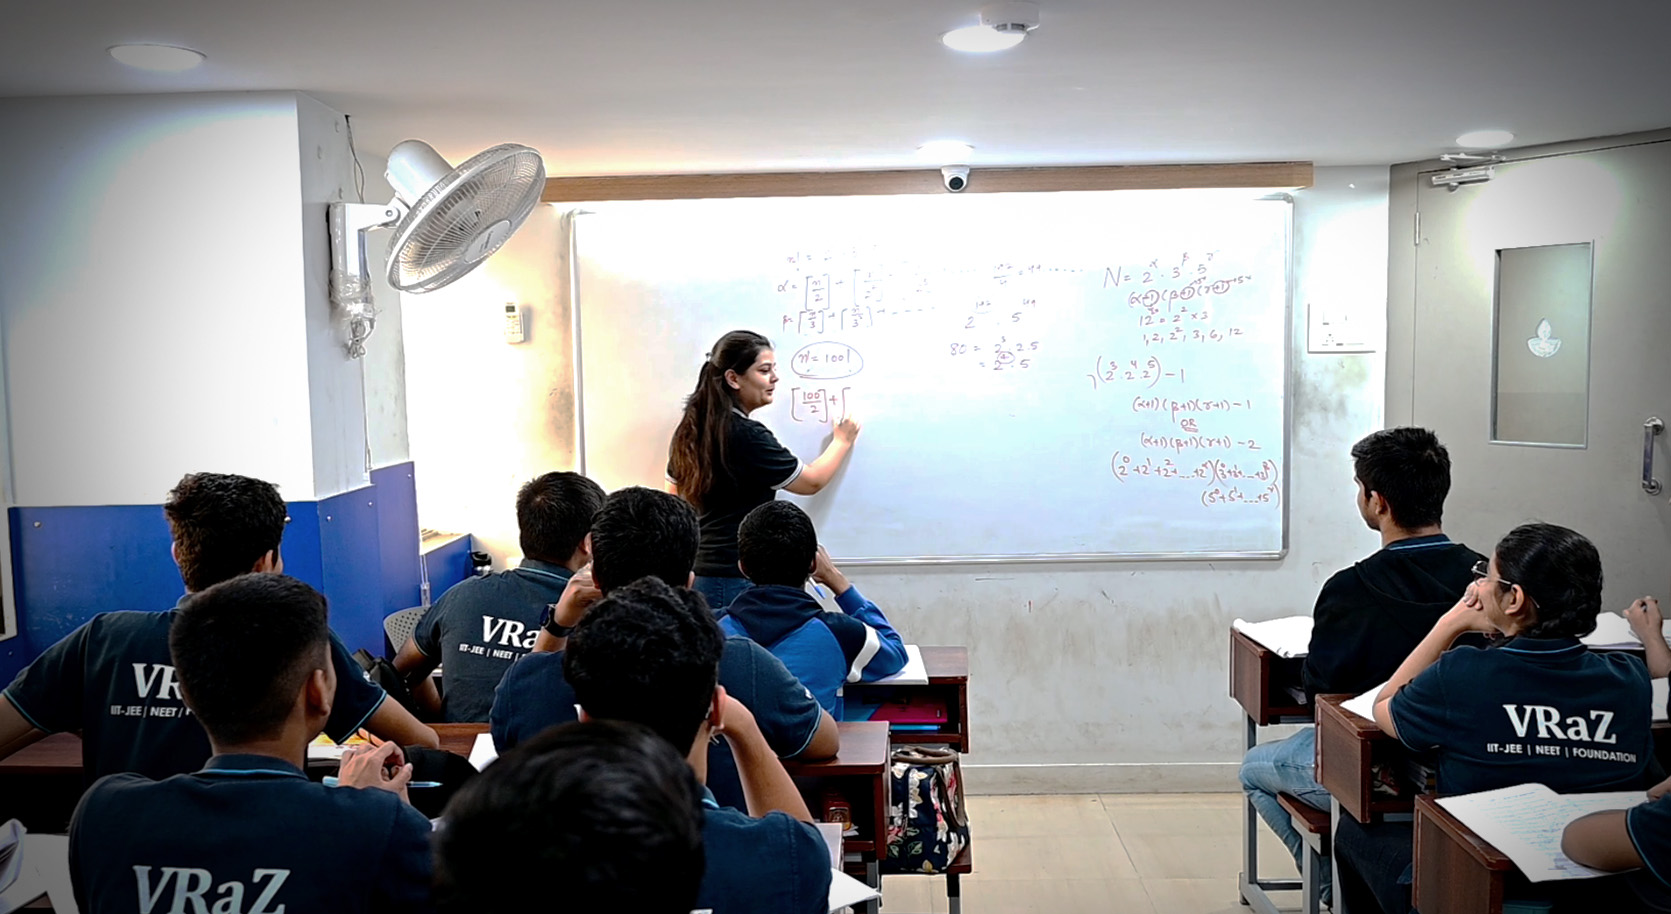 n! =
α = [n/2] + [n/2²]
β = [n/3] + [n/3²] + -----
n! = 100!
[100/2] + [
2 . 5
80 = 2³ . 2 . 5
= 2⁴ . 5
N = 2^α . 3^β . 5^γ
(α+1)(β+1)(γ+1)
12 = 2² × 3
1, 2, 2², 3, 6, 12
(2³ . 2⁴ . 2⁵) - 1
(α+1)(β+1)(γ+1) - 1
OR
(α+1)(β+1)(γ+1) - 2
(2⁰ + 2¹ + 2² + .... + 2^α)
(5⁰ + 5¹ + .... + 5^γ)
VR
IIT-JEE | NEET |
VRa
IIT-JEE | NEET |
VRaZ
VRaZ
IIT-JEE | NEET | FOUNDATION